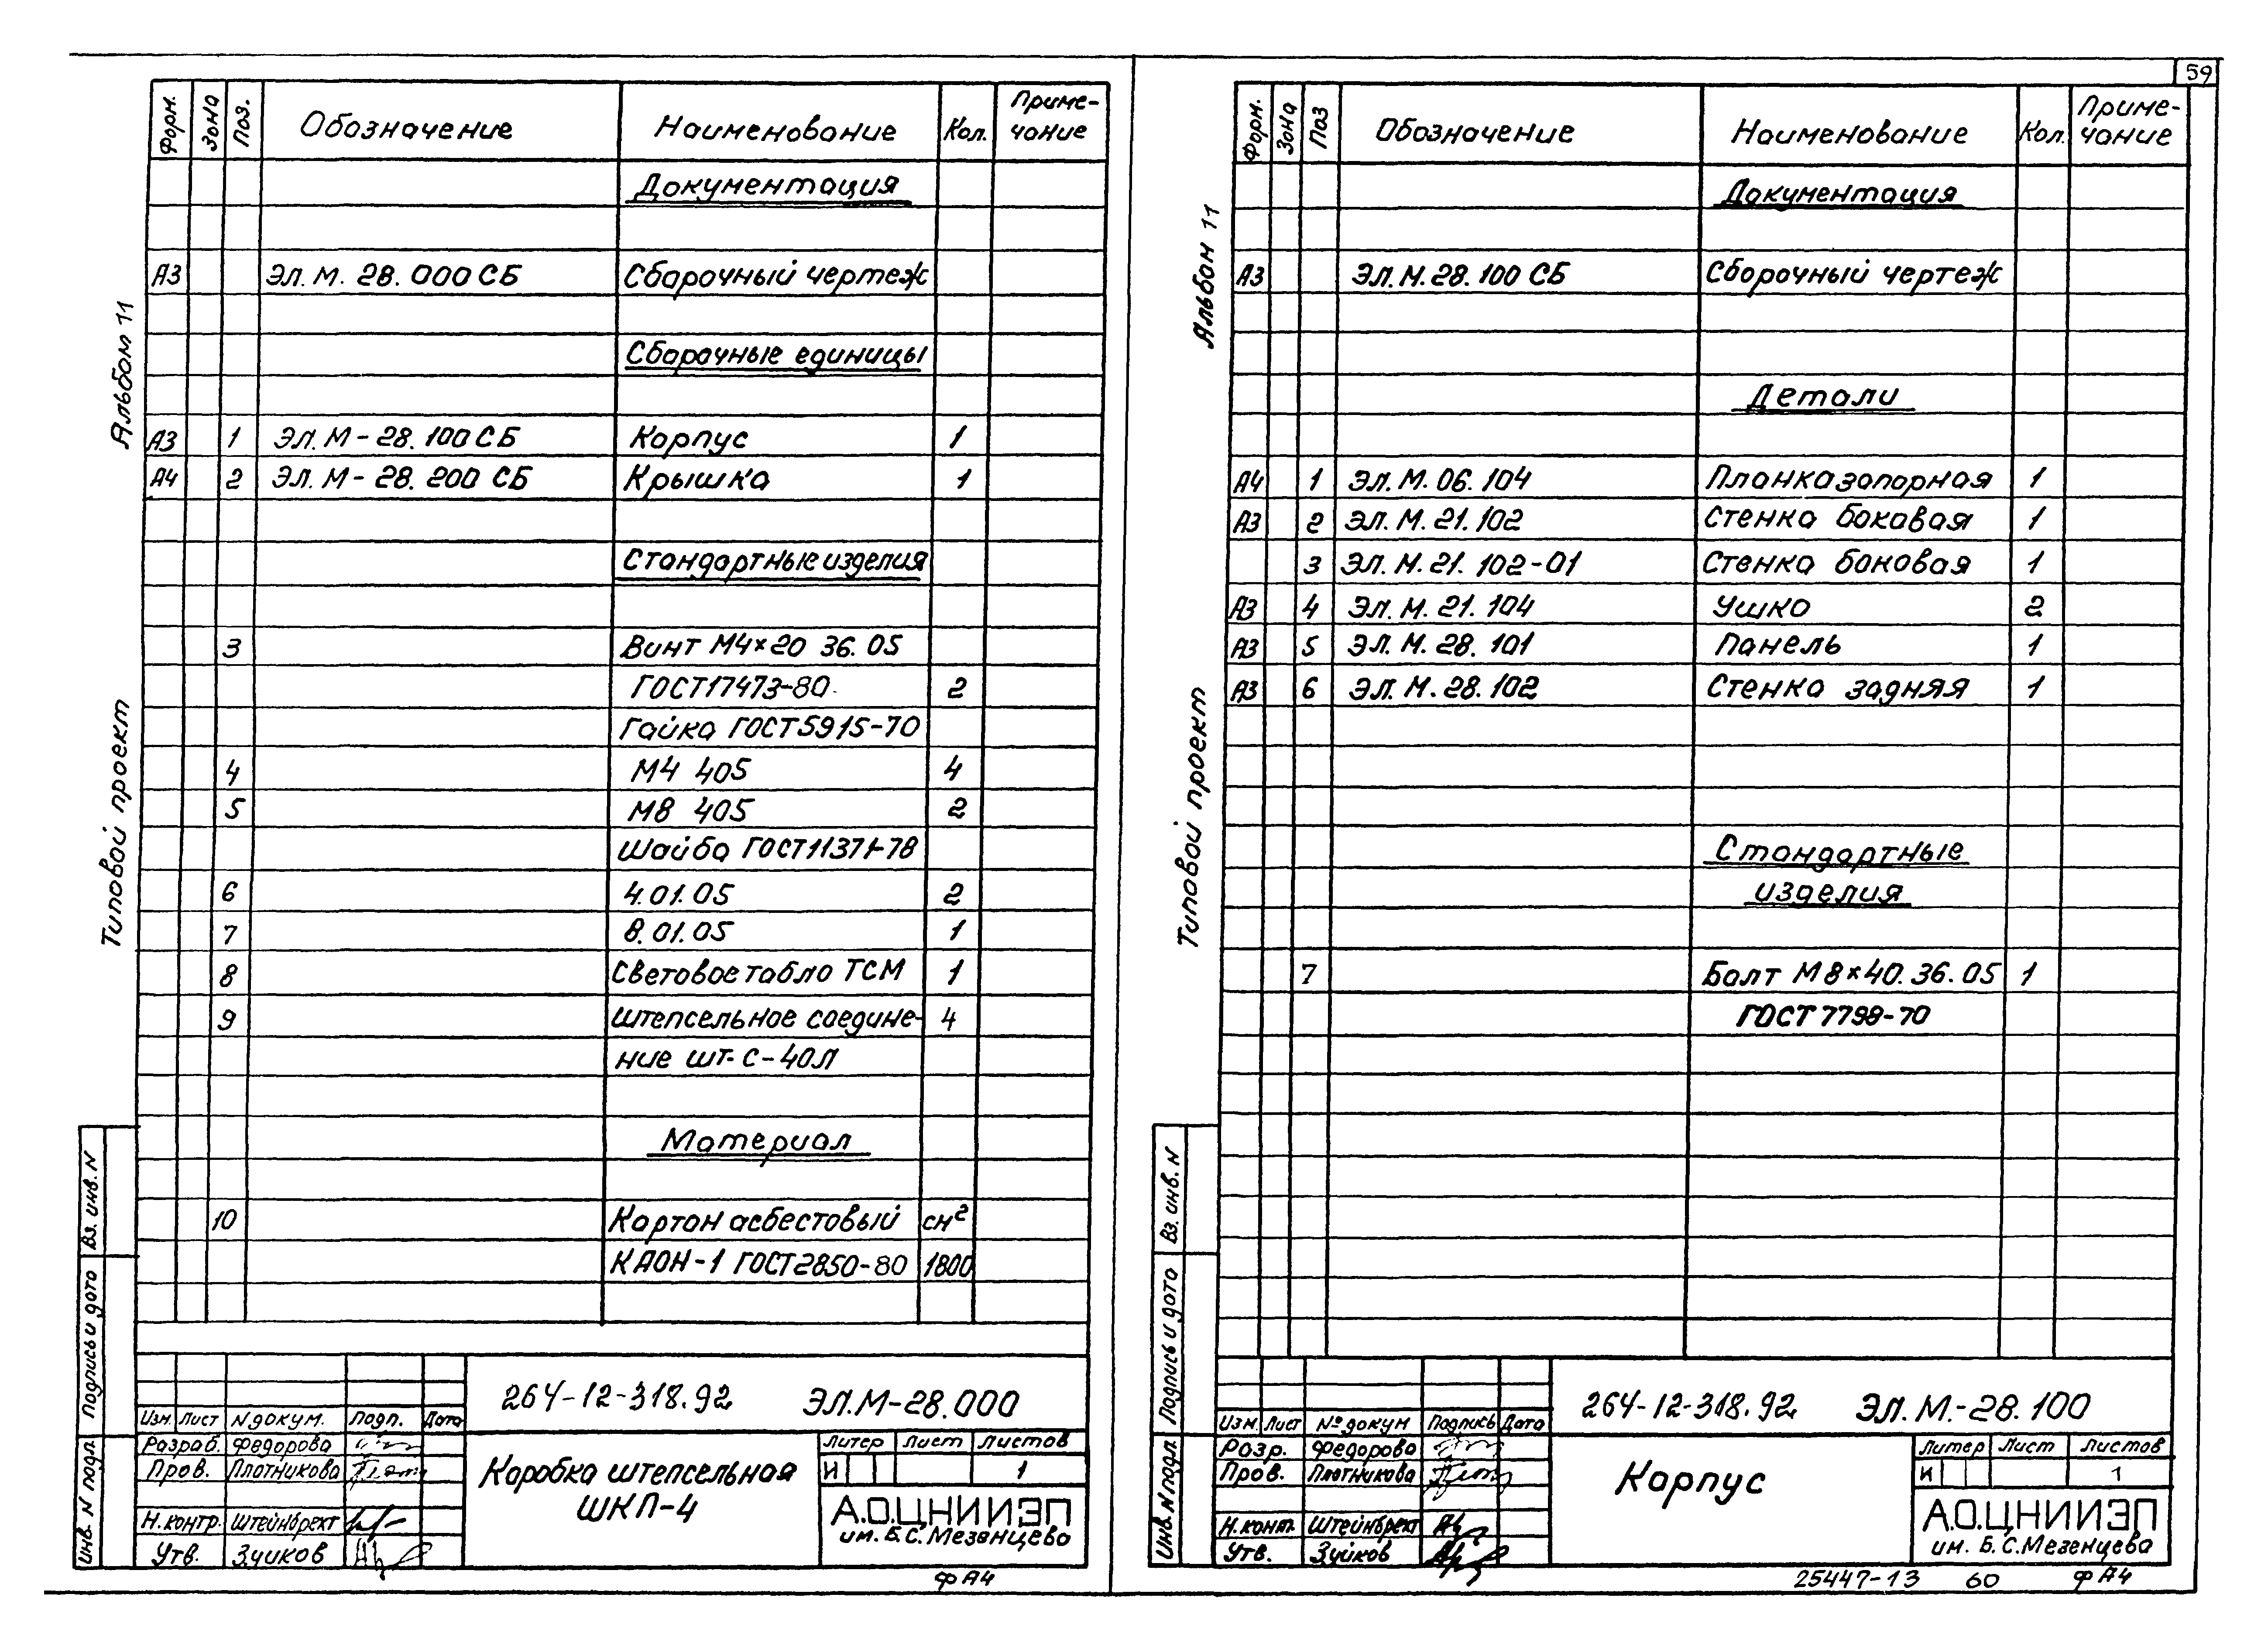 59
Форм. Зона Поз. Обозначение Наименование Кол. Приме-
чание
Документация
А3 ЭЛ.М.28.000 СБ Сборочный чертеж
Сборочные единицы
А3 1 ЭЛ.М-28.100 СБ Корпус 1
А4 2 ЭЛ.М-28.200 СБ Крышка 1
Стандартные изделия
3 Винт М4×20 36.05
ГОСТ17473-80 2
Гайка ГОСТ5915-70
4 М4 405 4
5 М8 405 2
Шайба ГОСТ11371-78
6 4.01.05 2
7 8.01.05 1
8 Световое табло ТСМ 1
9 Штепсельное соедине- 4
ние ШТ-С-40Л
Материал
10 Картон асбестовый см²
КАОН-1 ГОСТ2850-80 1800
Альбом 11
Типовой проект
Вз. инв. N
Подпись и дата
Инв. N подл.
264-12-318.92 ЭЛ.М-28.000
Изм. Лист N докум. Подп. Дата
Разраб. Федорова
Пров. Плотникова
Н.контр. Штейнбрехт
Утв. Зуйков
Коробка штепсельная
ШКП-4
Литер Лист Листов
И 1
А.О.ЦНИИЭП
им. Б.С.Мезенцева
ФА4
Форм. Зона Поз Обозначение Наименование Кол. Приме-
чание
Документация
А3 ЭЛ.М.28.100 СБ Сборочный чертеж
Детали
А4 1 ЭЛ.М.06.104 Планка запорная 1
А3 2 ЭЛ.М.21.102 Стенка боковая 1
3 ЭЛ.М.21.102-01 Стенка боковая 1
А3 4 ЭЛ.М.21.104 Ушко 2
А3 5 ЭЛ.М.28.101 Панель 1
А3 6 ЭЛ.М.28.102 Стенка задняя 1
Стандартные
изделия
7 Болт М8×40.36.05 1
ГОСТ 7798-70
Альбом 11
Типовой проект
Вз. инв. N
Подпись и дата
Инв. N подл.
264-12-318.92 ЭЛ.М.-28.100
Изм Лист №докум Подпись Дата
Розр. Федорова
Пров. Плотникова
Н.конт. Штейнбрехт
Утв. Зуйков
Корпус
Литер Лист Листов
И 1
А.О.ЦНИИЭП
им. Б.С.Мезенцева
25447-13 60 ФА4